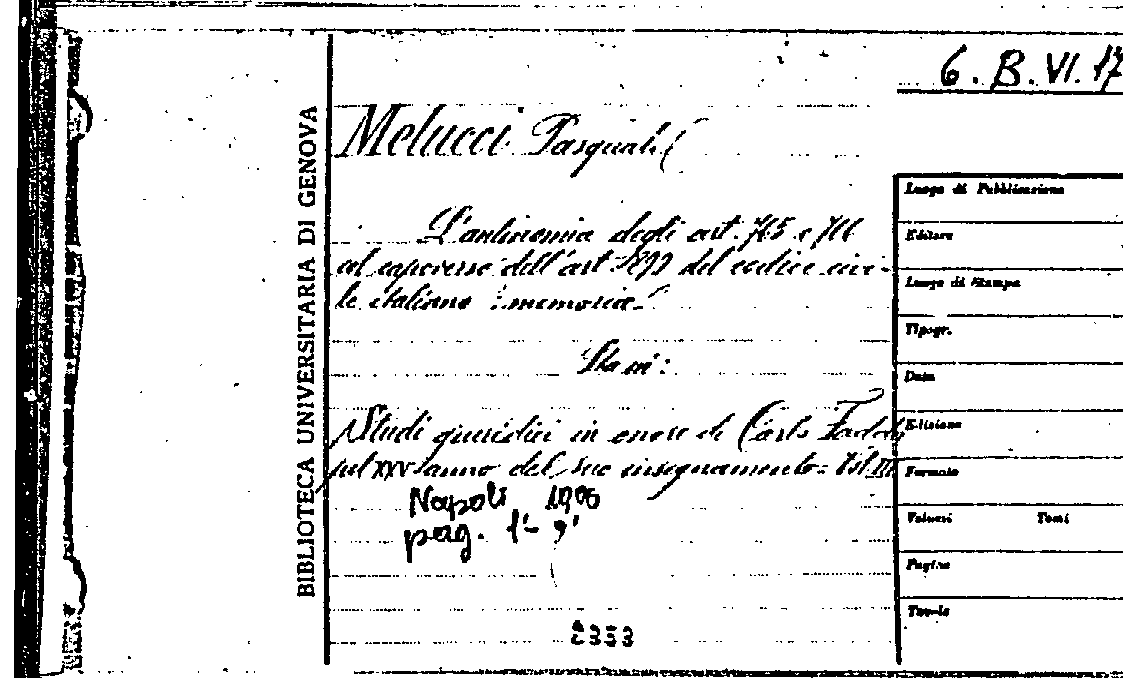 6. B. VI. 17
BIBLIOTECA UNIVERSITARIA DI GENOVA
Melucci Pasquale
L'antinomia degli art. 765 e 766
al capoverso dell'art 1899 del codice civi-
le italiano : memoria.
Sta in:
Studi giuridici in onore di Carlo Fadda
pel XXV anno del suo insegnamento = Vol. III
Napoli 1906
pag. 1 - 9
2353
Luogo di Pubblicazione
Editore
Luogo di Stampa
Tipogr.
Data
Edizione
Formato
Volumi Tomi
Pagine
Tavole